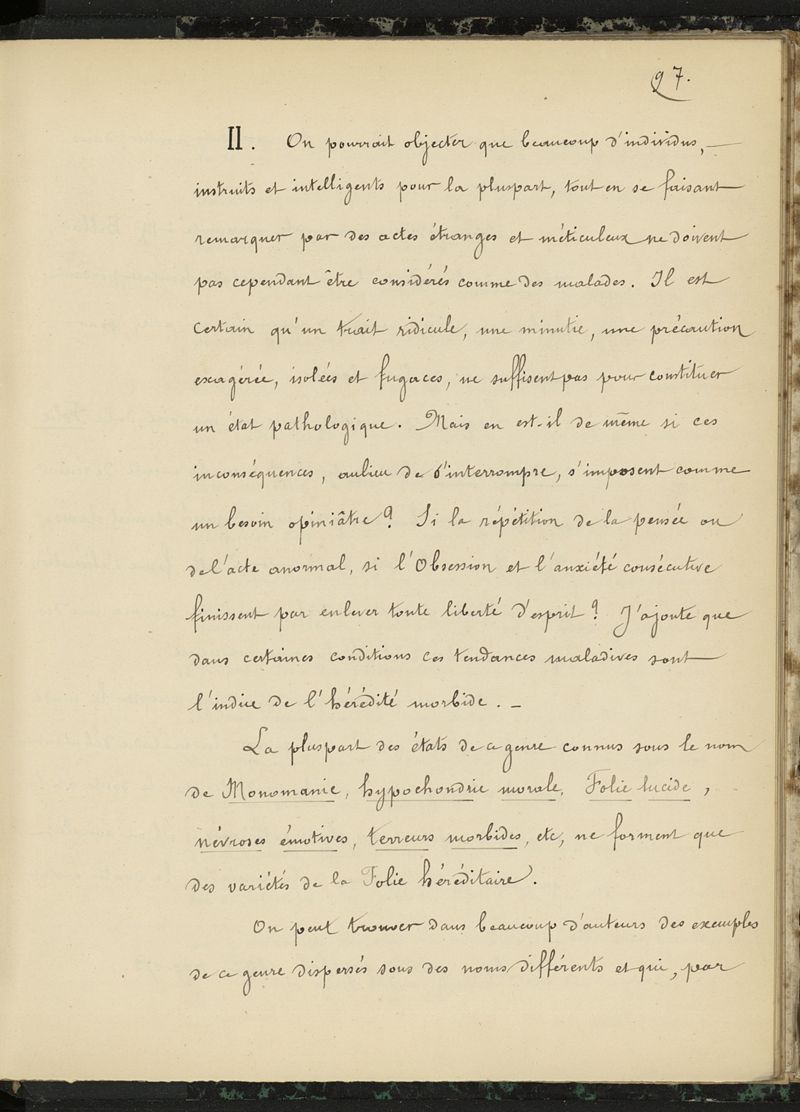 97.
II. On pourrait objecter que beaucoup d'individus,—
instruits et intelligents pour la pluspart, tout en se faisant
remarquer par des actes étranges et méticuleux ne doivent
pas cependant être considérés comme des malades. Il est
certain qu'un trait ridicule, une minutie, une précaution
exagérée, isolées et fugaces, ne suffisent pas pour constituer
un état pathologique. Mais en est-il de même si ces
inconséquences, aulieu de s'interrompre, s'imposent comme
un besoin opiniâtre? Si la répétition de la pensée ou
de l'acte anormal, si l'Obsession et l'anxiété consécutive
finissent par enlever toute liberté d'esprit? J'ajoute que
dans certaines conditions ces tendances maladives sont
l'indice de l'hérédité morbide. —
La pluspart des états de ce genre connus sous le nom
de Monomanie, hypochondrie morale, Folie lucide,
névroses émotives, terreurs morbides, etc, ne forment que
des variétés de la Folie héréditaire.
On peut trouver dans beaucoup d'auteurs des exemples
de ce genre dispersés sous des noms différents et qui, par